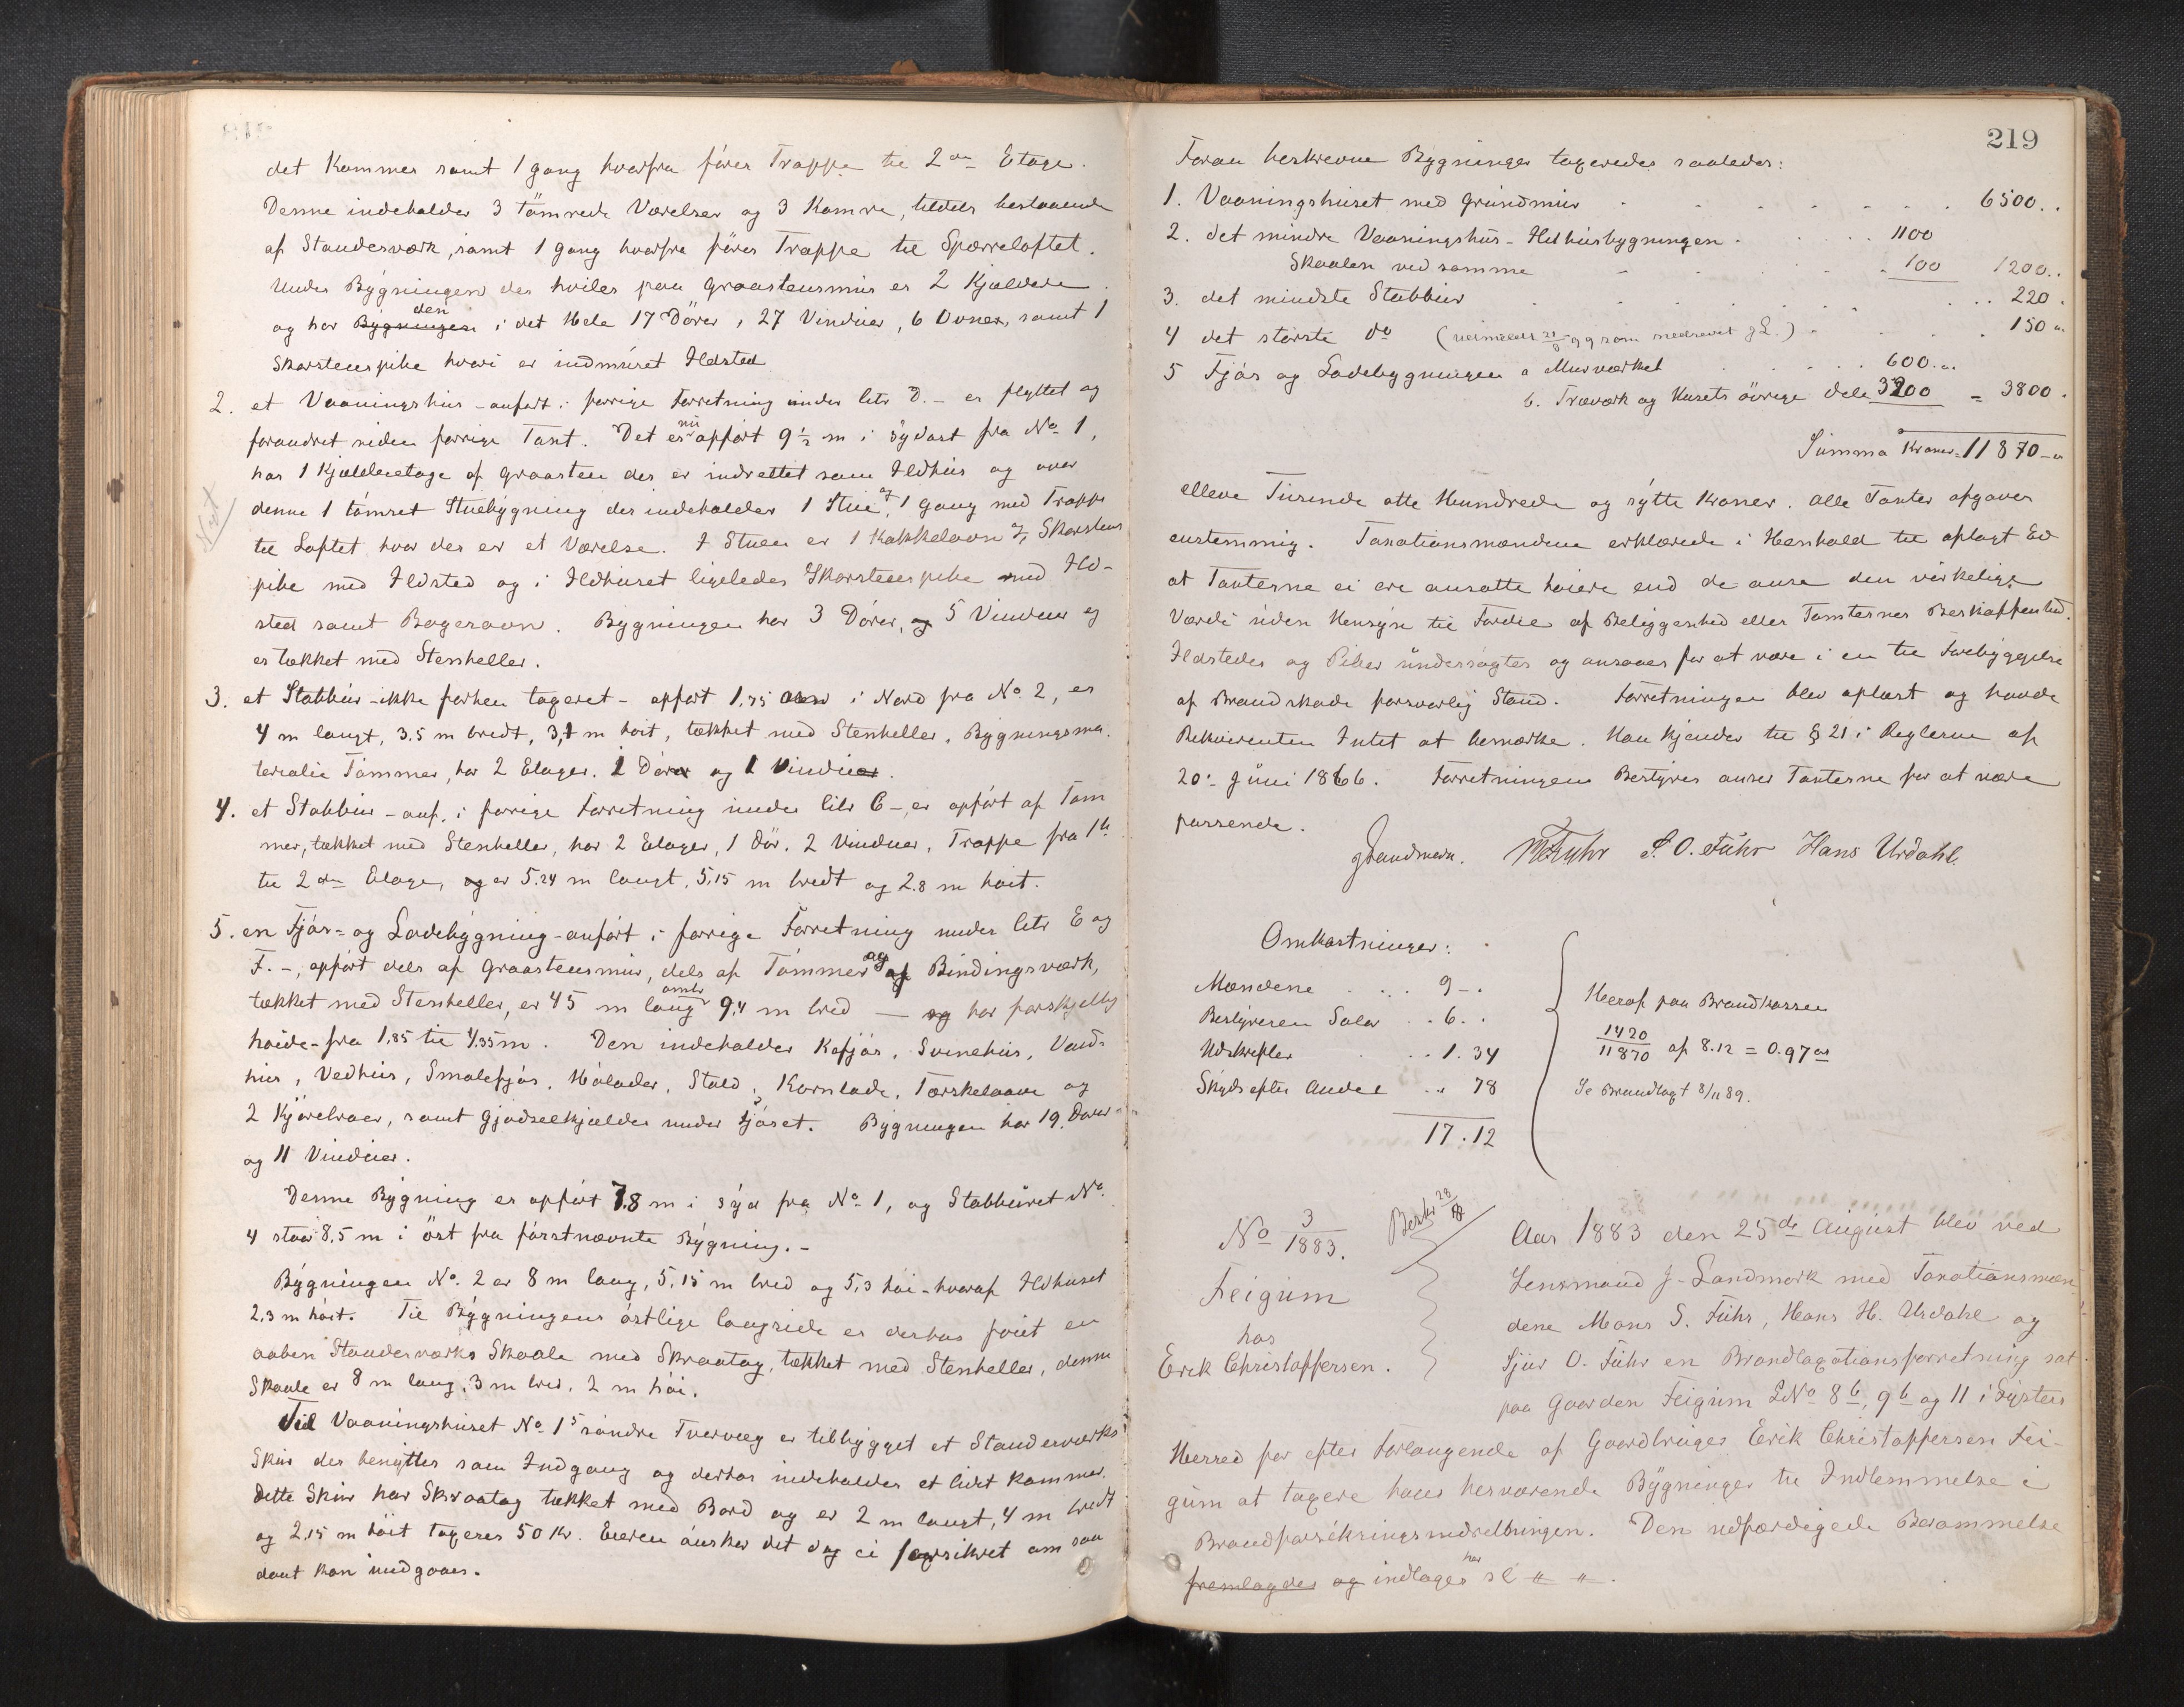 det Kammer samt 1 gang hvorfra förer Trappe til 2den Etage.
Denne indeholder 3 tömrede Værelser og 3 Kamre, tildels bestaaende
af Standerværk, samt 1 gang hvorfra förer Trappe til Sperreloftet.
Under Bygningen der hviler paa Graastensmur er 2 Kjældere
og har Bygningen den i det Hele 17 Dörer, 27 Vinduer, 6 Ovne, samt 1
Skorstenspibe hvori er indmuret Ildsted
2. et Vaaningshus - anfört i forrige Forretning under litr D. - er flyttet og
forandret siden forrige Taxt. Det er nu opfört 9½ m i Sydost fra No 1,
har 1 Kjælderetage af Graasten der er indrettet som Ildhus og over
denne 1 tömret Stuebygning der indeholder 1 Stue, og 1 Gang med Trappe
til Loftet hvor der er et Værelse. I Stuen er 1 Kakkelovn & Skorstens
pibe med Ildsted og i Ildhuset ligeledes Skorstenspibe med Ild-
sted samt Bagerovn. Bygningen har 3 Dörer, og 5 Vinduer og
er tækket med Stenheller.
3. et Stabbur - ikke forhen taxeret - opfört 1,75 i Nord fra No 2, er
4 m langt, 3.5 m bredt, 3,1 m höit, tækket med Stenheller, Bygningsma-
terialie Tömmer, har 2 Etager. 1 Dör og 1 Vindue.
4. et Stabbur - anf. i forrige Forretning under litr C -, er opfört af Töm
mer, tækket med Stenheller, har 2 Etager, 1 Dör. 2 Vinduer, Trappe fra 1ste
til 2den Etage, og er 5.24 m langt, 5,15 m bredt og 2.8 m höit.
5. en Fjös- og Ladebygning - anfört i forrige Forretning under litr E og
F. -, opfört dels af Graastensmur, dels af Tömmer og af Bindingsværk,
tækket med Stenheller, er 45 m lang omtr 9,4 m bred — og har forskjellig
höide - fra 1,85 til 4,35 m. Den indeholder Kofjös, Svinehus, Vand-
hus, Vedhus, Smalefjös, Hölader, Stald, Kornlade, Tærskelaave og
2 Kjörebroer, samt Gjödselkjælder under Fjöset. Bygningen har 19 Dörer
og 11 Vinduer.
Denne Bygning er opfört 7.8 m i Syd fra No 1, og Stabburet No
4 staar 8,5 m i öst fra förstnævnte Bygning. -
Bygningen No. 2 er 8 m lang, 5,15 m bred og 5,3 höi - hvoraf Ildhuset
2,3 m höit. Til Bygningens östlige Langside er derhos föiet en
aaben Standerværks Skaale med Skraatag, tækket med Stenheller, denne
Skaale er 8 m lang, 3 m bred, 2 m höi.
Ved Vaaningshuset No 1s söndre Tvervæg er tilbygget et Standerværks
Skur der benyttes som Indgang og derhos indeholder et lidet Kammer.
Dette Skur har Skraatag tækket med Bord og er 2 m langt, 4 m bredt
og 2,15 m höit taxeres 50 Kr. Eieren önsker det dog ei forsikret om saa
dant kan undgaaes.
219
Foran beskrevne Bygninger taxeredes saaledes:
1. Vaaningshuset med Grundmur 6500..
2. det mindre Vaaningshus - Ildhusbygningen 1100
Skaalen ved samme 100 1200..
3. det mindste Stabbur 220.
4 det störste do 150 "
5 Fjös og Ladebygningen a Murværket 600."
b. Træværk og Husets övrige Dele 3200 = 3800.
Summa Kroner = 11870 - "
elleve Tusinde otte Hundrede og sytti Kroner. Alle Taxter afgaves
enstemmig. Taxationsmændene erklærede i Henhold til aflagt Ed
at Taxterne ei ere ansatte höiere end de anse den virkelige
Værdi uden Hensyn til Fordel af Beliggenhed eller Tomternes Beskaffenhed.
Ildsteder og Piber undersögtes og ansaaes for at være i en til Forebyggelse
af Brandskade forsvarlig Stand. Forretningen blev oplæst og havde
Rekvirenten Intet at bemærke. Han kjender til § 21 i Reglerne af
20: Juni 1866. Forretningens Bestyrer anser Taxterne for at være
passende.
JLandmark. MSFuhr S. O. Fuhr Hans Urdahl.
Omkostninger:
Mændene 9 - .
Bestyreren Salær 6. .
Udskrifter 1. 34
Skyds efter Andel " 78
17.12
Heraf paa Brandkassen
1420/11870 af 8.12 = 0.97 "
Se Brandtaxt 8/11 89.
No 3/1883.
Feigum
hos
Erik Christoffersen.
Aar 1883 den 25de August blev ved
Lensmand J. Landmark med Taxationsmæn
dene Mons S. Fuhr, Hans H. Urdahl og
Sjur O. Fuhr en Brandtaxationsforretning sat
paa Gaarden Feigum LNo 8b, 9b og 11 i Lyster
Herred for efter Forlangende af Gaardbruger Erik Christoffersen Fei-
gum at taxere hans herværende Bygninger til Indlemmelse i
Brandforsikringsindretningen. Den udfærdigede Berammelse
fremlagdes og indtages her sl " " .